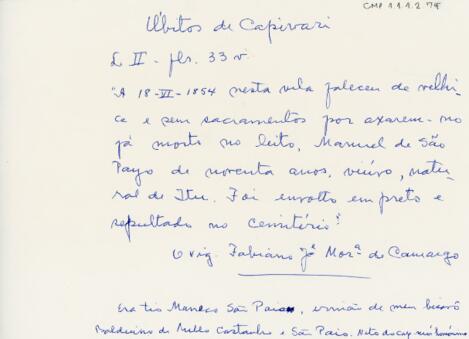 CMP 1.1.1.2.79
Óbitos de Capivari
L II - fls. 33 v.
"A 18-VI-1854 nesta vila faleceu de velhi-
ce e sem sacramentos por axarem-no
já morto no leito, Manuel de São
Payo de noventa anos, viúvo, natu-
ral de Itu. Foi envolto em preto e
sepultado no cemitério"
O vig. Fabiano Jê Morª de Camargo
Era tio Maneco São Paio, irmão de meu bisavô
Balduino de Mello Castanho e São Paio. Neto do cap mór